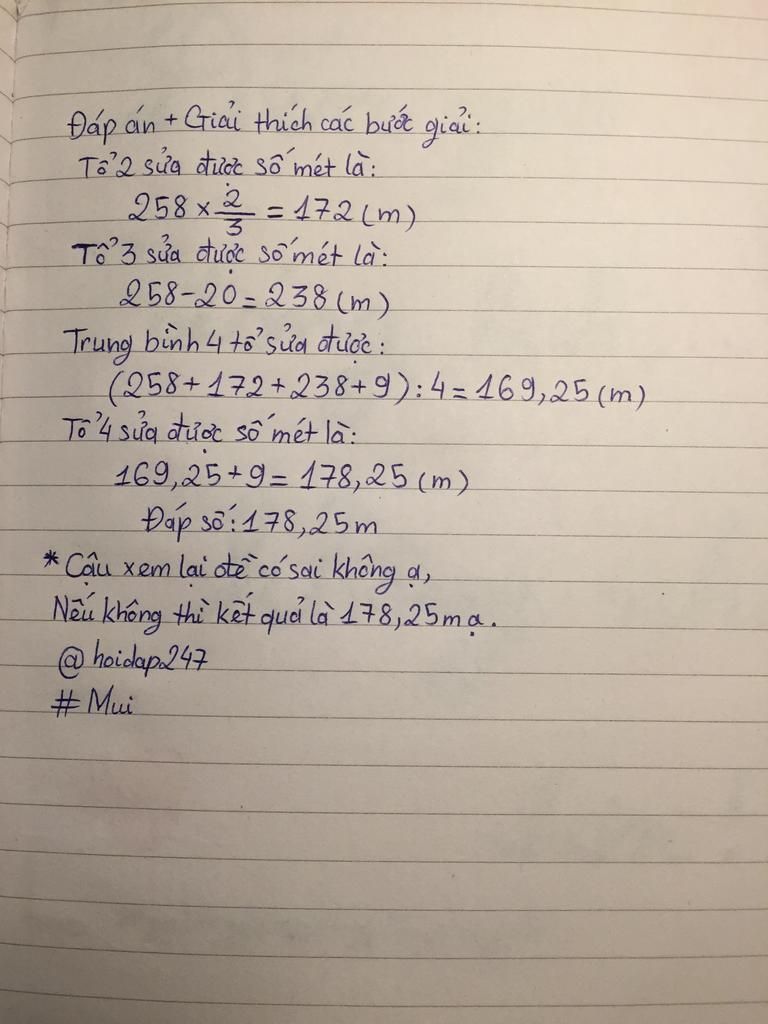 Đáp án + Giải thích các bước giải:
Tổ 2 sửa được số mét là:
258 × 2/3 = 172 (m)
Tổ 3 sửa được số mét là:
258 - 20 = 238 (m)
Trung bình 4 tổ sửa được:
(258 + 172 + 238 + 9) : 4 = 169,25 (m)
Tổ 4 sửa được số mét là:
169,25 + 9 = 178,25 (m)
Đáp số: 178,25m
* Cậu xem lại đề có sai không ạ,
Nếu không thì kết quả là 178,25m ạ.
@hoidap247
# Mui